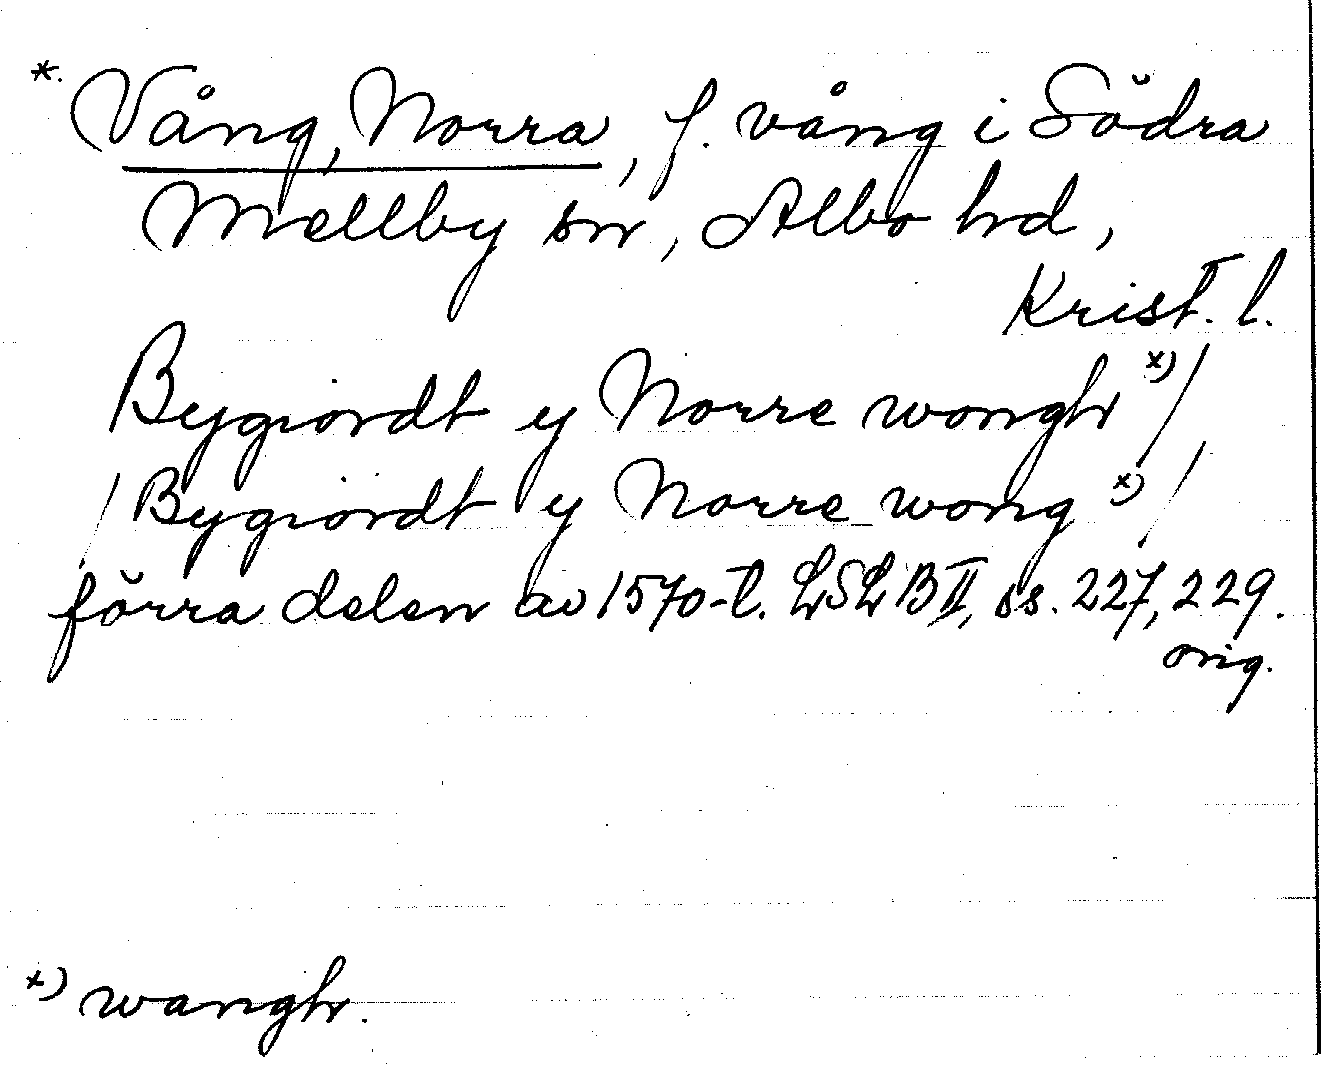 *. Vång, Norra, f. vång i Södra
Mellby sn, Albo hd,
Krist. l.
Bygiordt y Norre wongh x)/
/Bygiordt y Norre wong x)/
förra delen av 1570-t. LSLB II, ss. 227, 229.
orig.
x) wangh.